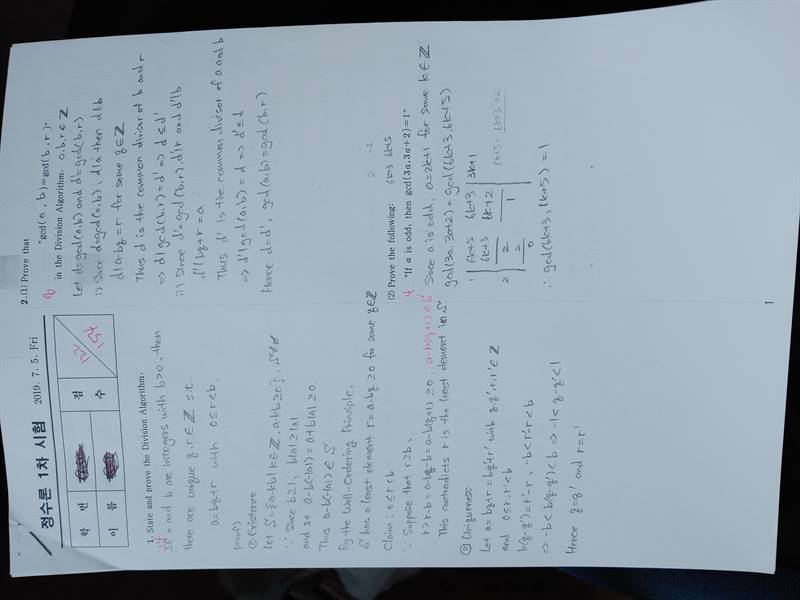 정수론 1차 시험 2019. 7. 5. Fri
학 번
이 름
점
수
1. State and prove the Division Algorithm.
If a and b are integers with b>0, then
there are unique q, r∈ℤ s.t.
a=bq+r with 0≤r<b.
proof)
① Existence
Let S={a-kb | k∈ℤ, a-kb≥0}, S≠∅
∵ Since b≥1, b|a|≥|a|
and so a-b(-|a|)=a+b|a|≥0.
Thus a-b(-|a|)∈S
By the Well-Ordering Principle,
S has a least element r=a-bq≥0 for some q∈ℤ
Claim: 0≤r<b
∵ Suppose that r≥b,
r>r-b=a-bq-b=a-b(q+1)≥0, a-b(q+1)∈S
This contradicts r is the least element in S
② Uniqueness
Let a=bq+r=bq'+r' with q,q',r,r'∈ℤ
and 0≤r,r'<b
b(q-q')=r'-r, -b<r'-r<b
⇒ -b<b(q-q')<b ⇒ -1<q-q'<1
Hence q=q' and r=r'
2. (1) Prove that
8
"gcd(a, b)=gcd(b, r)"
in the Division Algorithm. a,b,r∈ℤ
Let d=gcd(a,b) and d'=gcd(b,r)
i) Since d=gcd(a,b), d|a then d|b
d|a-bq=r for some q∈ℤ
Thus d is the common divisor of b and r
⇒ d|gcd(b,r)=d' ⇒ d≤d'
ii) Since d'=gcd(b,r), d'|r and d'|b
d'|bq+r=a
Thus d' is the common divisor of a and b
⇒ d'|gcd(a,b)=d ⇒ d'≤d
Hence d=d', gcd(a,b)=gcd(b,r)
(2) Prove the following: 6k+3 6k+5
4
"If a is odd, then gcd(3a, 3a+2)=1"
Since a is odd, a=2k+1 for some k∈ℤ
gcd(3a, 3a+2)=gcd(6k+3, 6k+5)
1 6k+5 6k+3 3k+1
6k+3 6k+2
2 2 1
2
0
∴ gcd(6k+3, 6k+5)=1
1